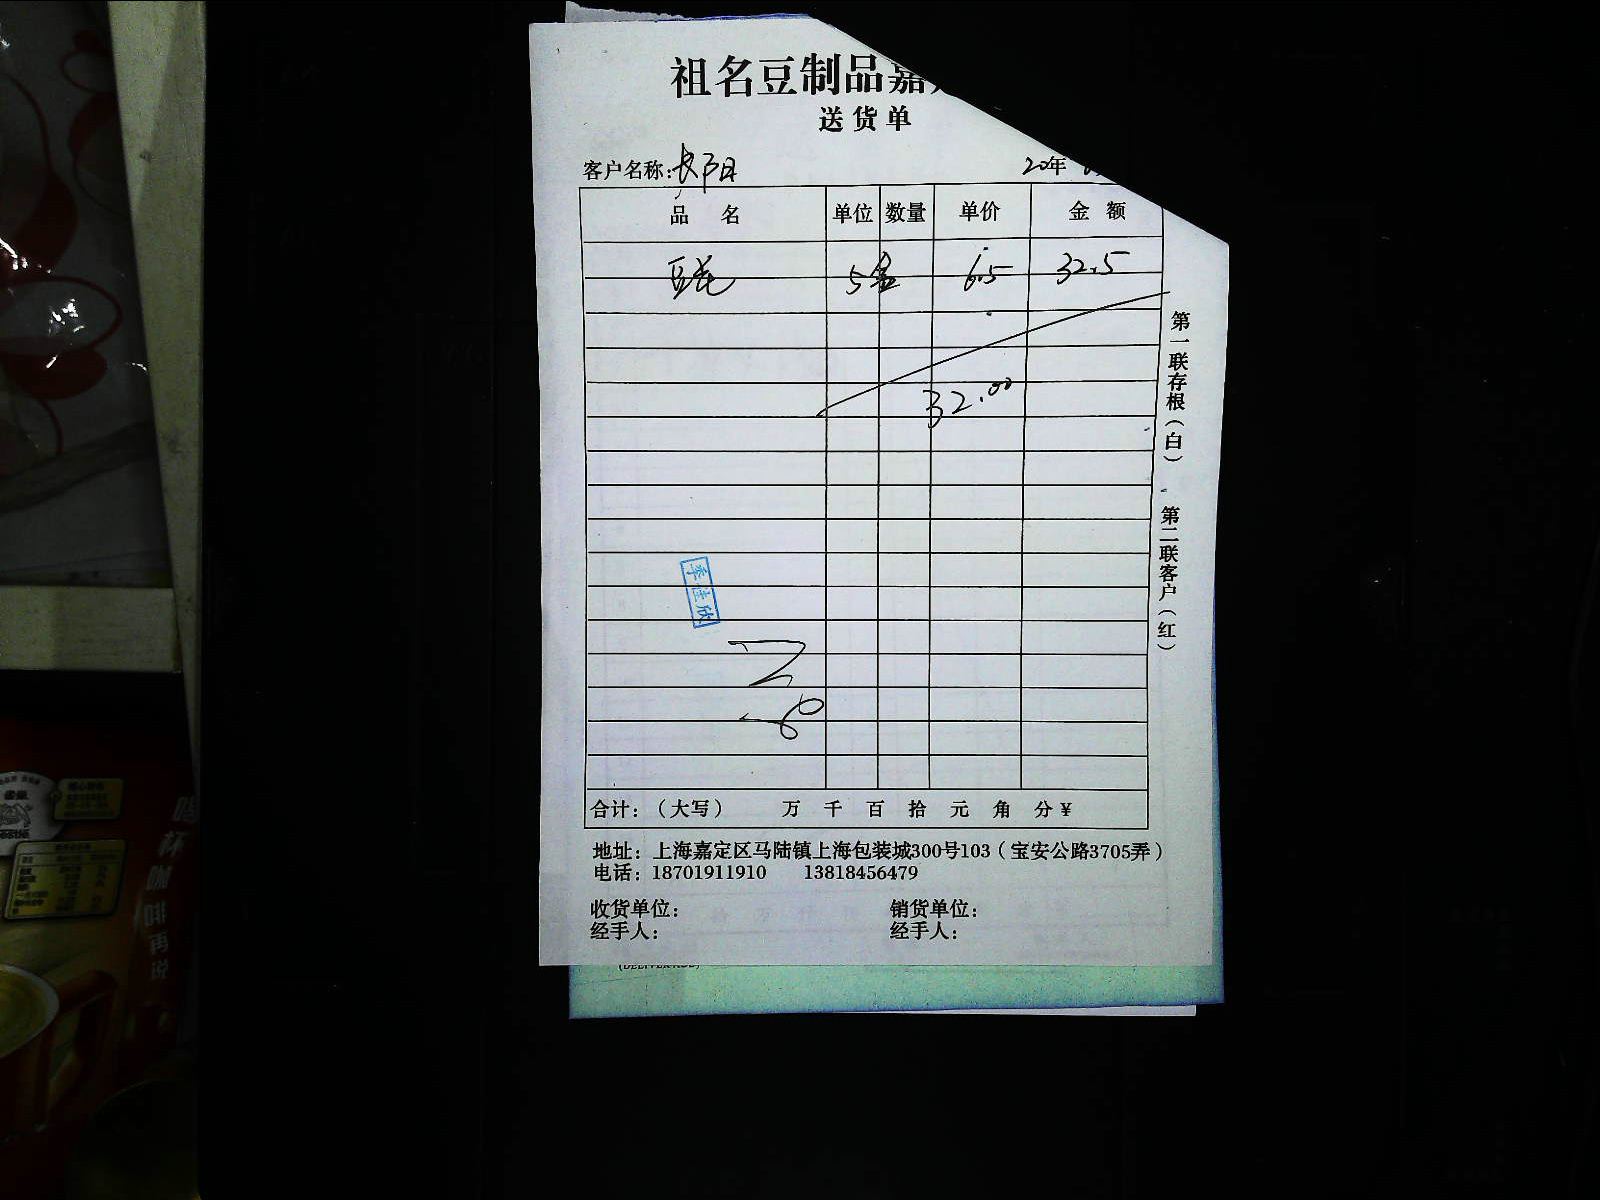 祖名豆制品嘉
送货单
客户名称：长阳
20年
品 名 单位 数量 单价 金 额
5盒 6.5 32.5
32.00
第一联存根（白） 第二联客户（红）
季佳欣
合计：（大写） 万 千 百 拾 元 角 分 ¥
地址：上海嘉定区马陆镇上海包装城300号103（宝安公路3705弄）
电话：18701911910 13818456479
收货单位： 销货单位：
经手人： 经手人：
喝杯咖啡再说